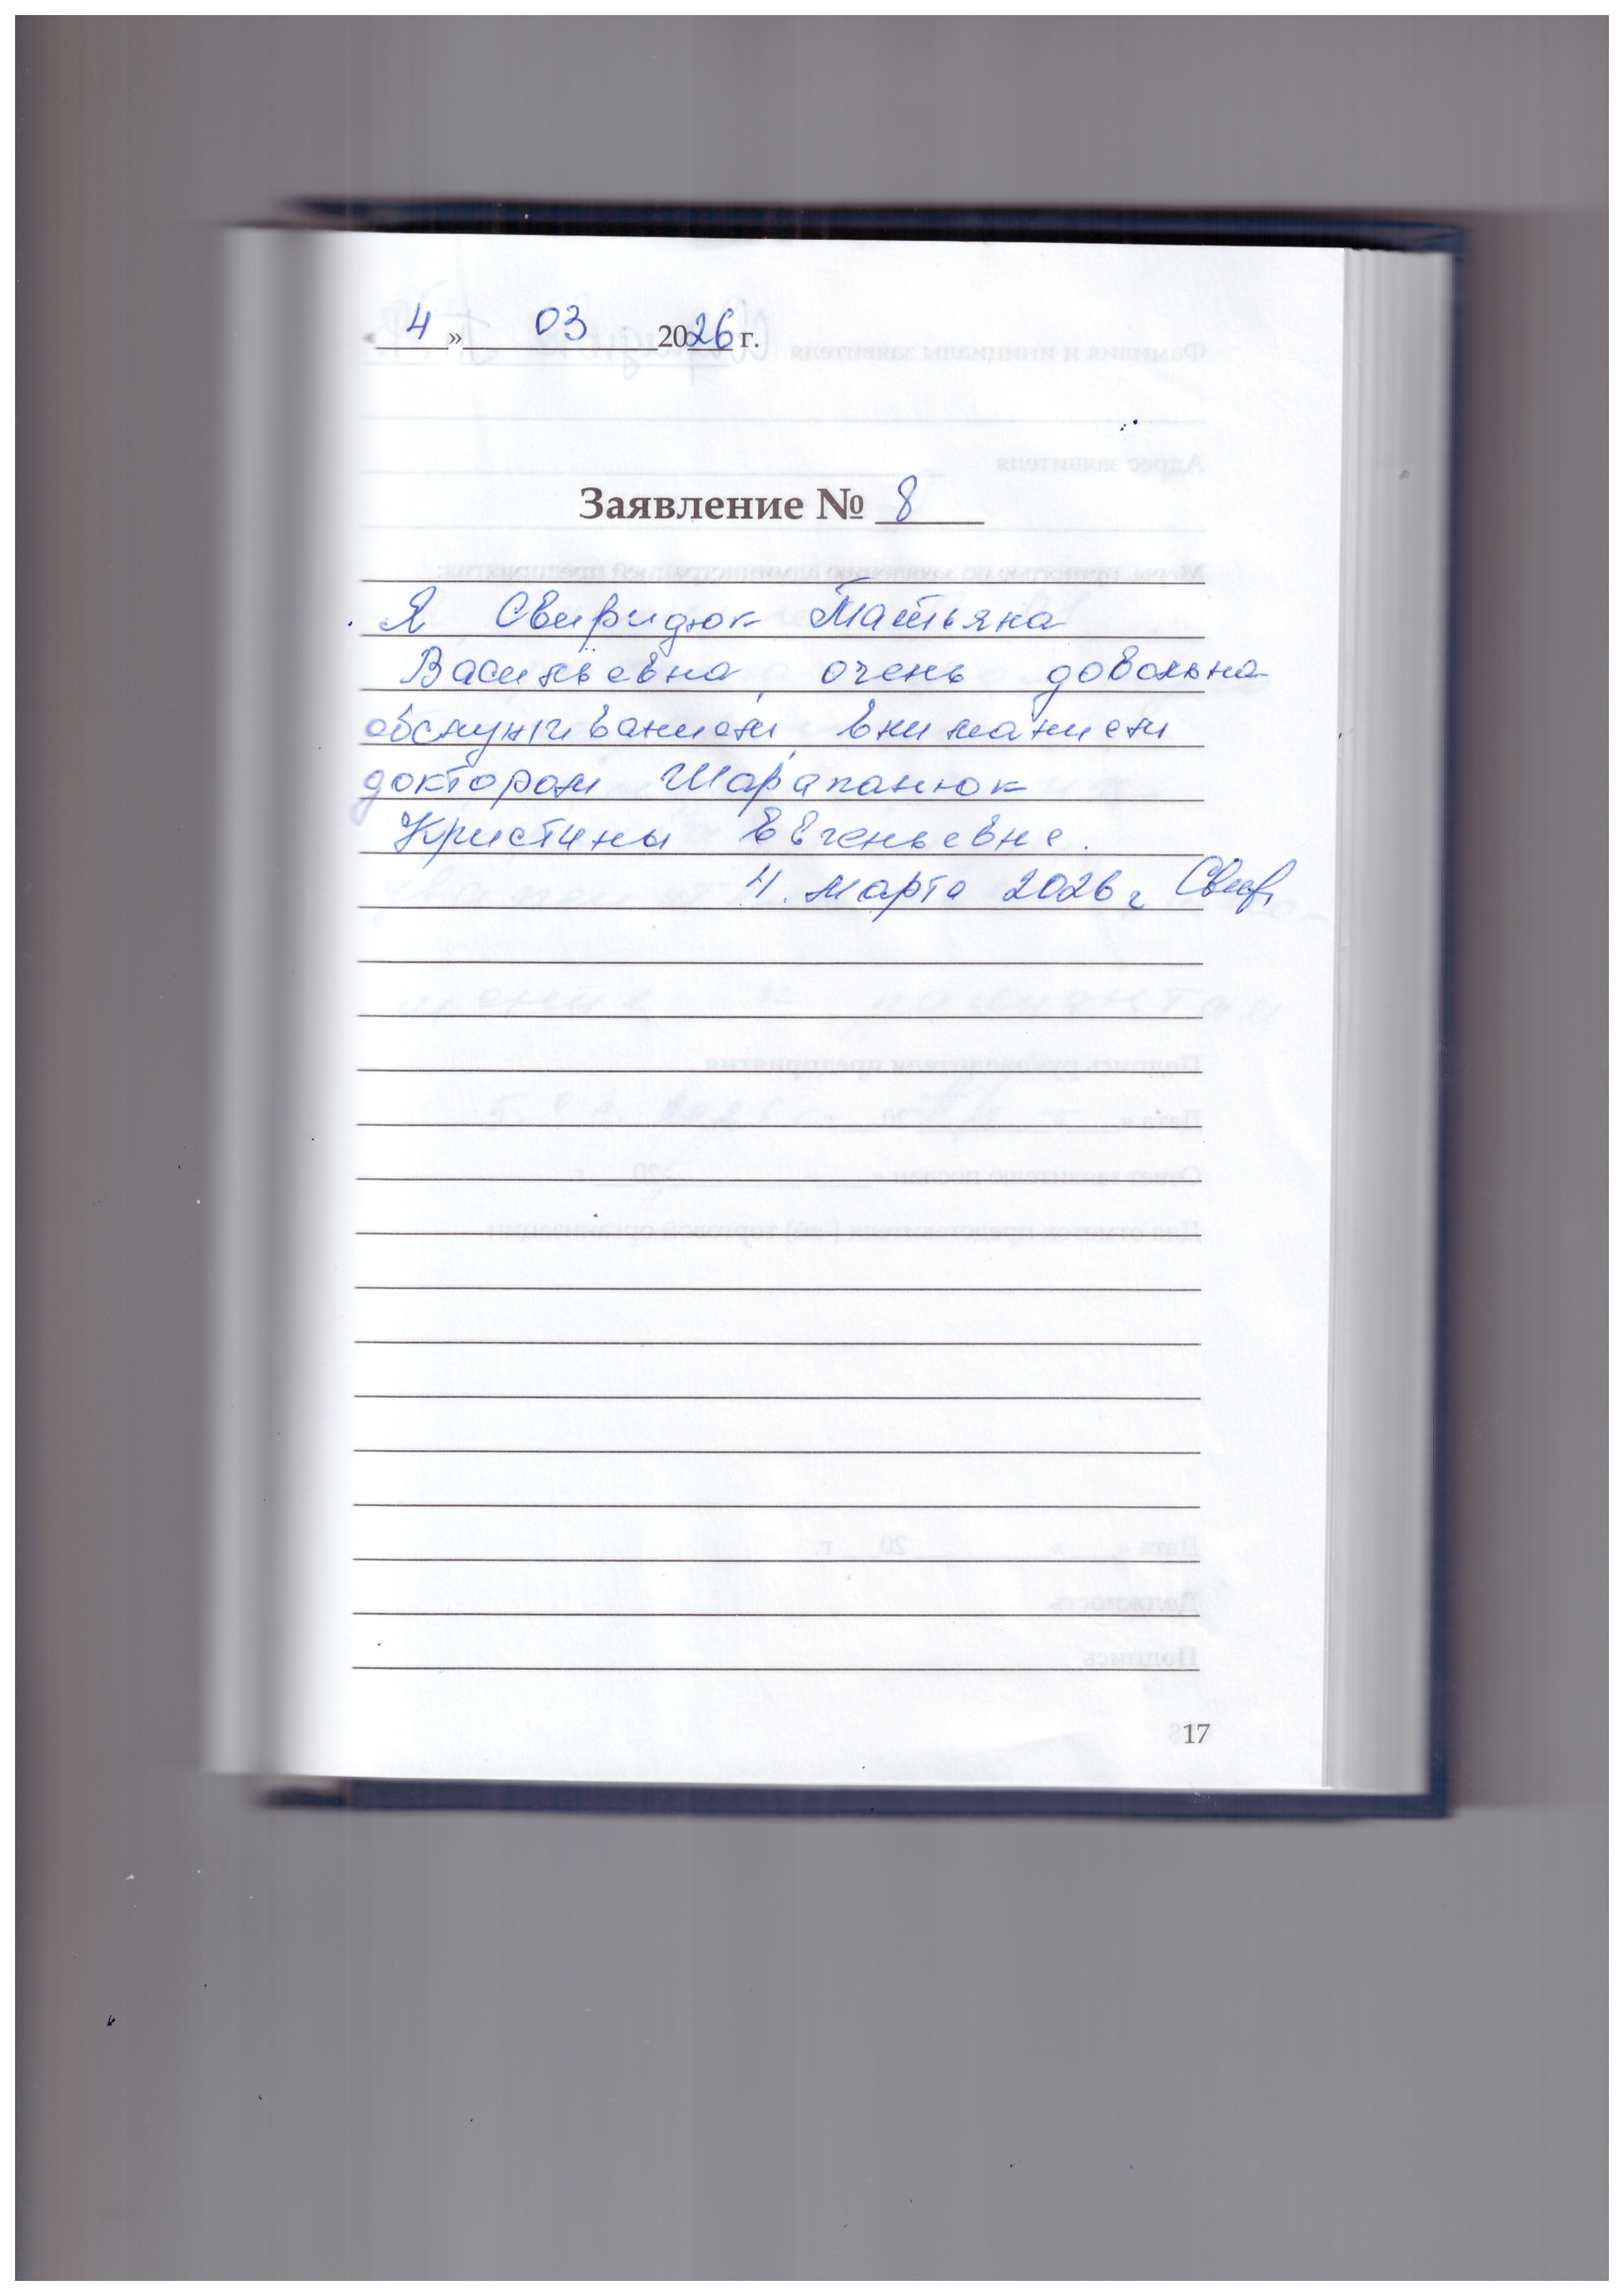 « 4 » 03 2026 г.
Заявление № 8
Я Свиридюк Татьяна
Васильевна, очень довольна
обслуживанием, вниманием
доктором Шарапанюк
Кристины Евгеньевне.
4. марта 2026 г
17